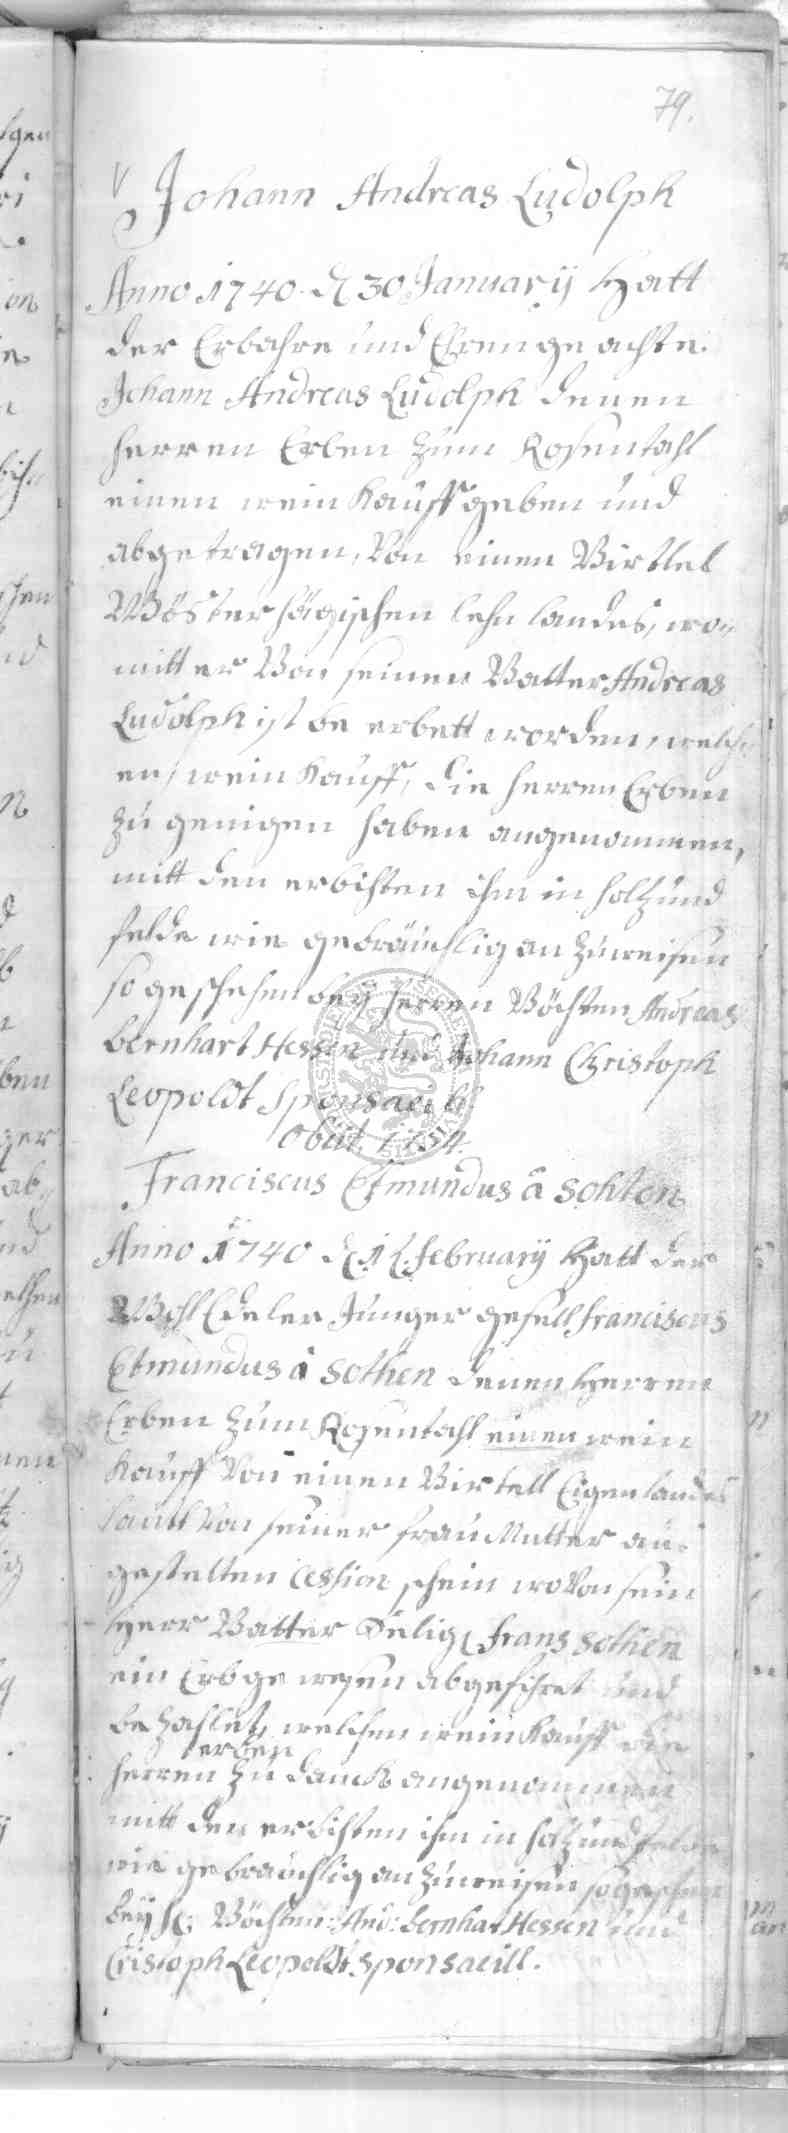 79.
V Johann Andreas Ludolph
Anno 1740 d 30 January hatt
der Erbahre und Ehrengeachte
Johann Andreas Ludolph denen
herren Erben zum Rosentahl
einen weinkauff geben und
abgetragen, Von einen Virttel
Wösterhägischen lehn landes, wo„
mitt er Von seinen Vatter Andreas
Ludolph ist be erbett worden, welch„
en weinkauff, die herren Erben
zu genigen haben angenommen,
mitt den erbihten ihm in holtz und
felde wie gebräuchlig an zuweisen
so geschehen beÿ herren Vöchten Andreas
bernhart Hessen und Johann Christoph
Leopoldt Sponsaeill
obiit 1754.
Franciscus Etmundus â Sohten
Anno 1740 d february hatt der
WohlEdeler Junger gesell franciscus
Etmundus â Sothen denen Herren
Erben zum Rosentahl einen wein
kauff Von einen Virtell Eigenlandes
lautt Von seiner frau Mutter aus
gestelten Cession schein wovon sein
Herr Vatter Selig frans Sothen
ein Erb gewesen abgefihret und
bezahlet, welchen weinkauff die
erben
herren zu danck angenommen
mitt den erbihten ihm in holtz und felde
wie gebräuchlig anzuweisen so geschehen
beÿ H: Vöchten: And: bernhart Hessen und
Cristoph Leopoldt Sponsaeill.